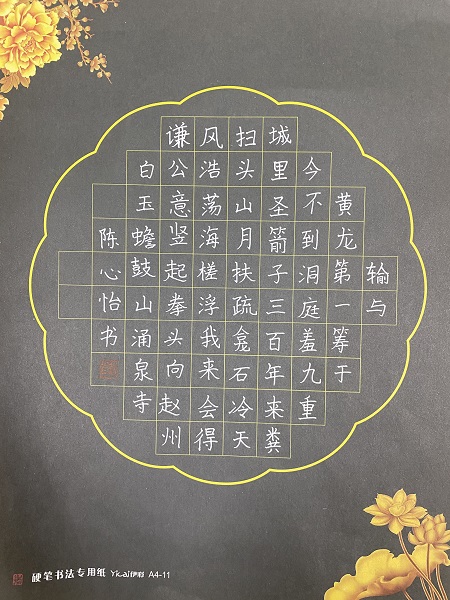 输与
黄龙第一筹于
今不到洞庭羞九重
城里圣箭子三百年来粪
扫头山月扶疏龛石冷天
风浩荡海槎浮我来会得
谦公意竖起拳头向赵州
白玉蟾鼓山涌泉寺
陈心怡书
硬笔书法专用纸 Yicai伊彩 A4-11